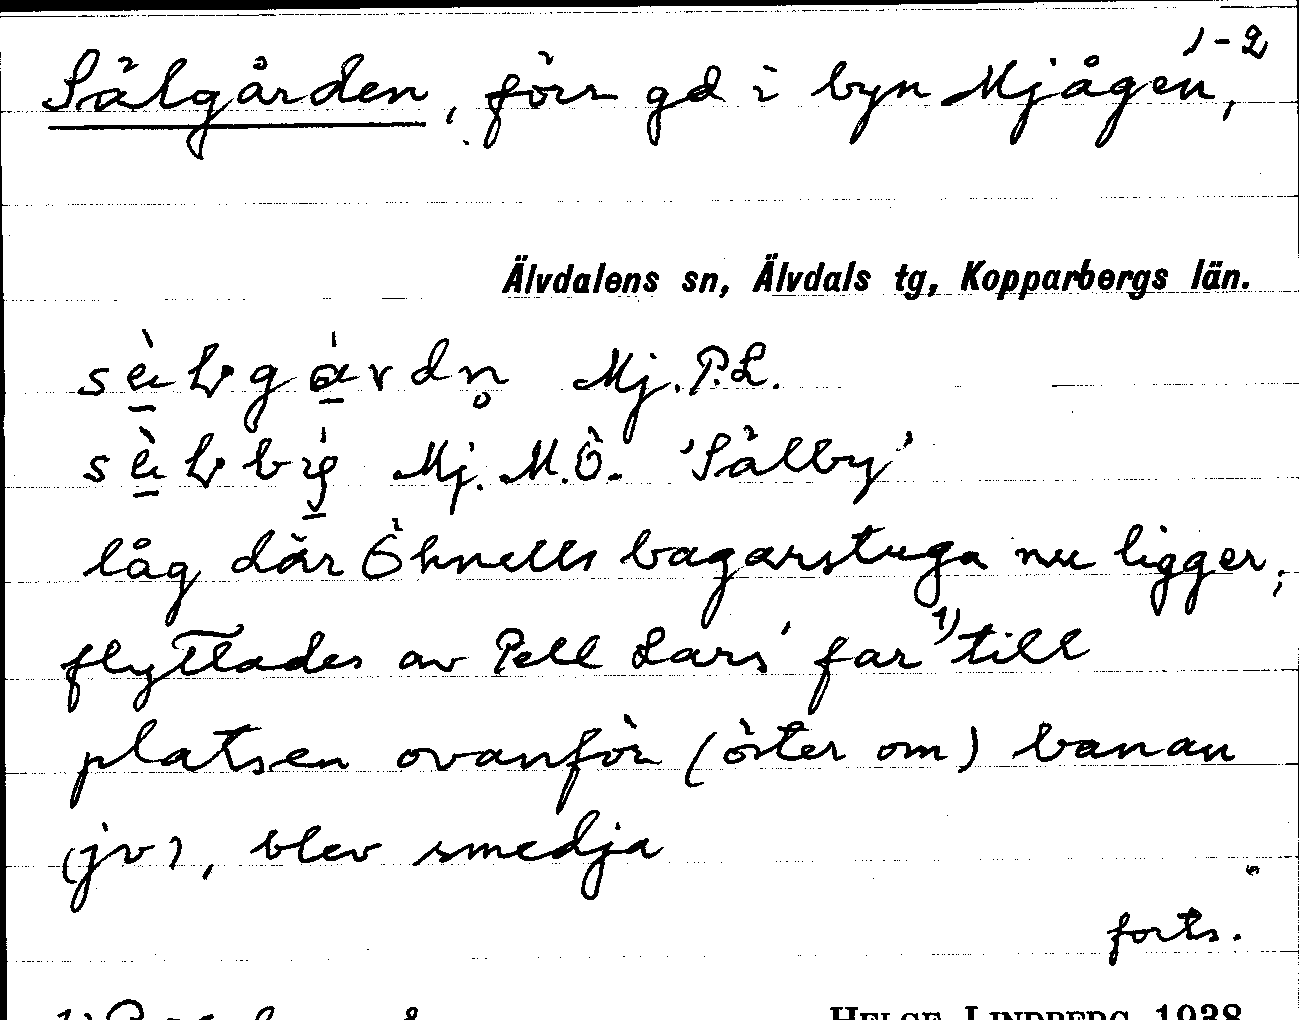 1-2
Sälgården, förr gd i byn Mjågen,
Älvdalens sn, Älvdals tg, Kopparbergs län.
Mj. P.L.
Mj. M.Ö. 'Sälby'
låg där Öhnells bagarstuga nu ligger,
flyttades av Pell Lars' far 1) till
platsen ovanför (öster om) banan
(jv), blev smedja
forts.
HELGE LINDBERG 1938